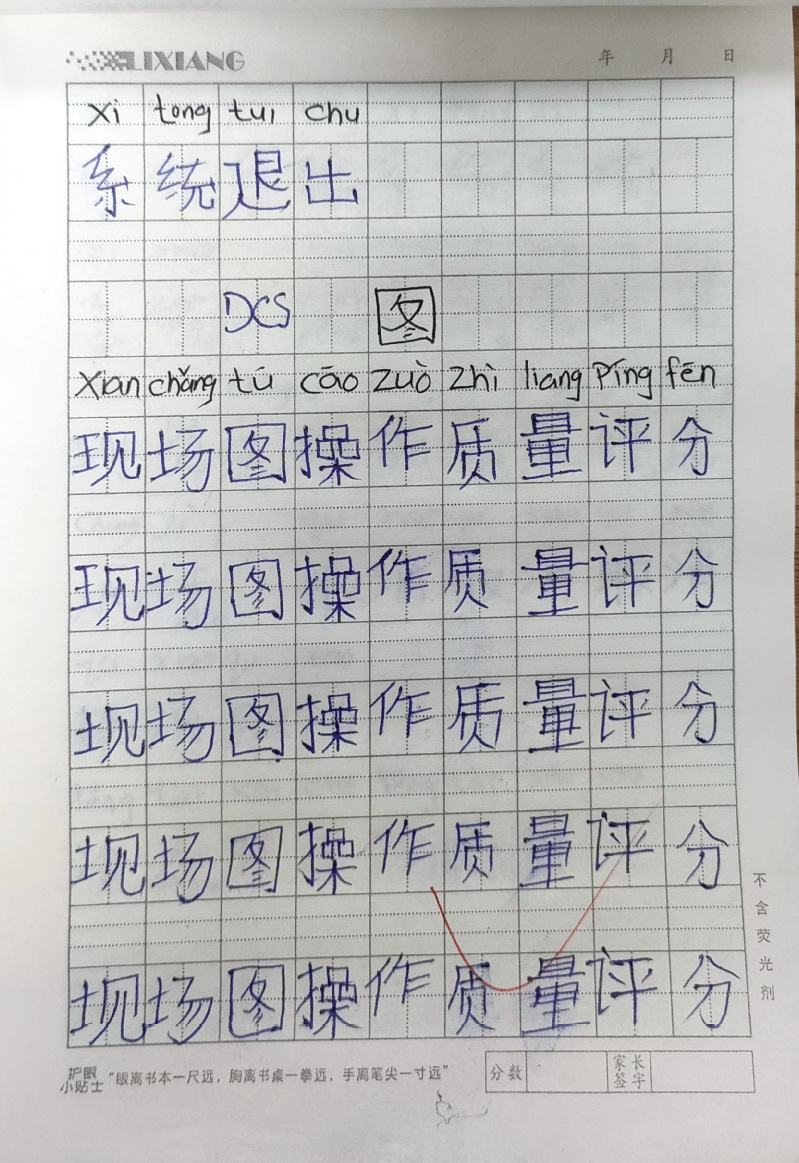 LIXIANG 年 月 日
xi tong tui chu
系统退出
DCS 图
Xian chǎng tú cāo zuò zhì liang Píng fēn
现场图操作质量评分
现场图操作质量评分
现场图操作质量评分
现场图操作质量评分
现场图操作质量评分
不含荧光剂
护眼小贴士 "眼离书本一尺远，胸离书桌一拳远，手离笔尖一寸远" 分数 家长签字